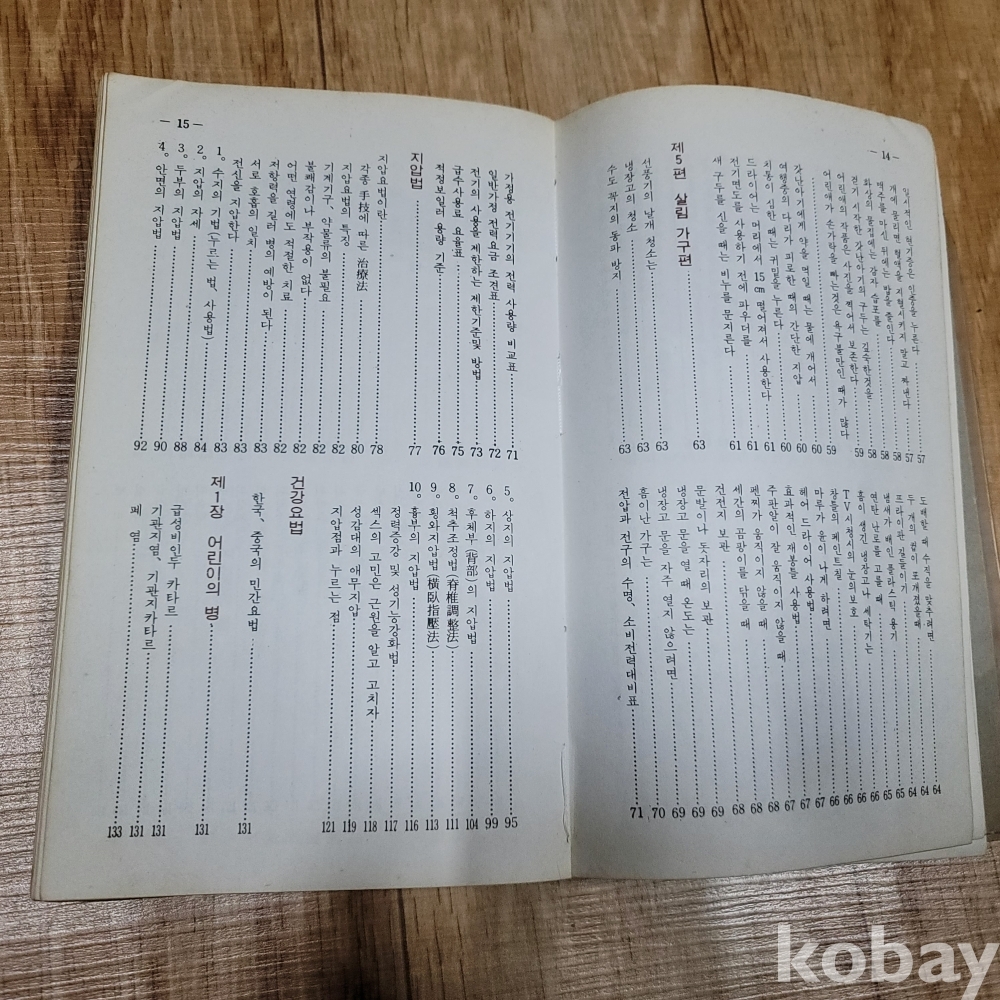 — 14 —
일시적인 혁기증은 인중을 누른다 57
개에 물리면 혈액을 지혈시키지 말고 짜낸다 57
맥주를 마신 뒤에는 발을 줄인다 58
화상의 물집에는 감자 습포를 58
걷기 시작한 갓난아기의 구두는 길쭉한것을 58
어린애의 작품은 사진을 찍어서 보존한다 59
어린애가 손가락을 빠는것은 욕구불만인 때가 많다 59
갓난아기에게 약을 먹일 때는 물에 개어서 60
여행중의 다리가 피로한 때의 간단한 지압 60
치통이 심한 때는 귀밑을 누른다 60
드라이어는 머리에서 15㎝ 떨어져서 사용한다 61
전기면도를 사용하기 전에 파우더를 61
새 구두를 신을 때는 비누를 문지른다 61
제5편 살림 가구편 63
선풍기의 날개 청소는 63
냉장고의 청소 63
수도 꼭지의 동파 방지 63
도배할 때 수직을 맞추려면 64
두 개의 컵이 포개졌을때 64
프라이판 길들이기 64
냄새가 배인 플라스틱 용기 65
연탄 난로를 고를때 65
흠이 생긴 냉장고나 세탁기는 66
TV시청시의 눈의보호 66
창틀의 페인트칠 66
마루가 윤이 나게 하려면 67
헤어 드라이어 사용법 67
효과적인 재봉틀 사용법 67
주판알이 잘 움직이지 않을 때 68
펜찌가 움직이지 않을 때 68
세간의 곰팡이를 닦을 때 68
건전지 보관 69
문발이나 돗자리의 보관 69
냉장고 문을 열 때 온도는 69
냉장고 문을 자주 열지 않으려면 70
흠이난 가구는
전압과 전구의 수명、소비전력대비표 71
— 15 —
가정용 전기기기의 전력 사용량 비교표 71
일반가정 전력요금 조견표 72
전기의 사용을 제한하는 제한기준및 방법 73
급수사용료 요율표 75
적정보일러 용량 기준 76
지압법 77
지압요법이란 78
각종 手技에 따른 治療法 80
지압요법의 특징 82
기계기구、약물류의 불필요 82
불쾌감이나 부작용이 없다 82
어떤 연령에도 적절한 치료 82
저항력을 길러 병의 예방이 된다 83
서로 호흡의 일치 83
전신을 지압한다 83
1。수지의 기법(누르는 법、사용법) 83
2。지압의 자세 84
3。두부의 지압법 88
4。안면의 지압법 90
92
5。상지의 지압법 95
6。하지의 지압법 99
7。후체부(背部)의 지압법 104
8。척추조정법(脊椎調整法) 111
9。횡와지압법(橫臥指壓法) 113
10。흉부의 지압법 116
정력증강 및 성기능강화법 117
섹스의 고민은 근원을 알고 고치자 118
성감대의 애무지압 119
지압점과 누르는 점 121
건강요법
한국、중국의 민간요법 131
제1장 어린이의 병 131
급성비인두 카타르 131
기관지염、기관지카타르 131
폐 염 133
kobay